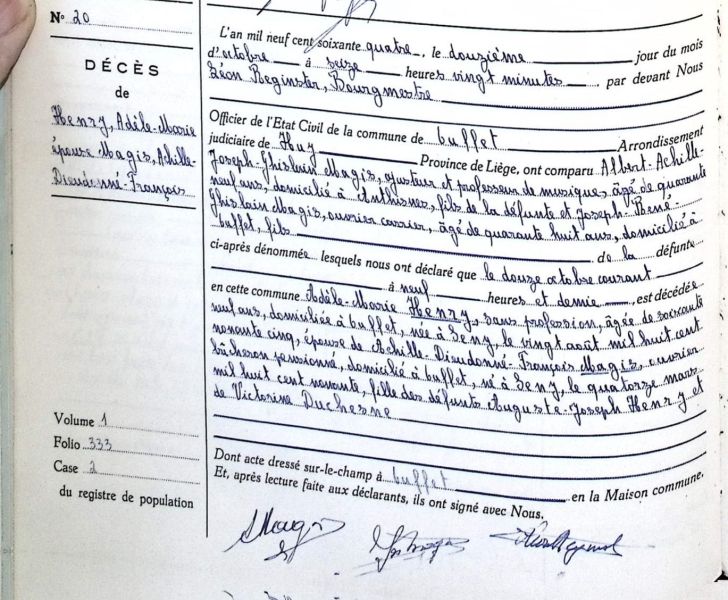 N° 20
DÉCÈS
de
Henry, Adèle-Marie
épouse Magis, Achille-
Dieudonné-François
Volume 1
Folio 333
Case 2
du registre de population
L'an mil neuf cent soixante quatre, le douzième jour du mois
d'octobre à seize heures vingt minutes par devant Nous
Léon Reginster, Bourgmestre
Officier de l'Etat Civil de la commune de buffet Arrondissement
judiciaire de Huy Province de Liège, ont comparu Albert-Achille-
Joseph-Ghislain Magis, ajusteur et professeur de musique, âgé de quarante
neuf ans, domicilié à Anthisnes, fils de la défunte et Joseph-René-
Ghislain Magis, ouvrier carrier, âgé de quarante huit ans, domicilié à
buffet, fils de la défunte
ci-après dénommée lesquels nous ont déclaré que le douze octobre courant
à neuf heures et demie, est décédée
en cette commune Adèle-Marie Henry, sans profession, âgée de soixante
neuf ans, domiciliée à buffet, née à Seny, le vingt août mil huit cent
nonante cinq, épouse de Achille-Dieudonné François Magis, ouvrier
bûcheron pensionné, domicilié à buffet, né à Seny, le quatorze mars
mil huit cent nonante, fille des défunts Auguste-Joseph Henry et
de Victorine Duchesne
Dont acte dressé sur-le-champ à buffet en la Maison commune.
Et, après lecture faite aux déclarants, ils ont signé avec Nous.